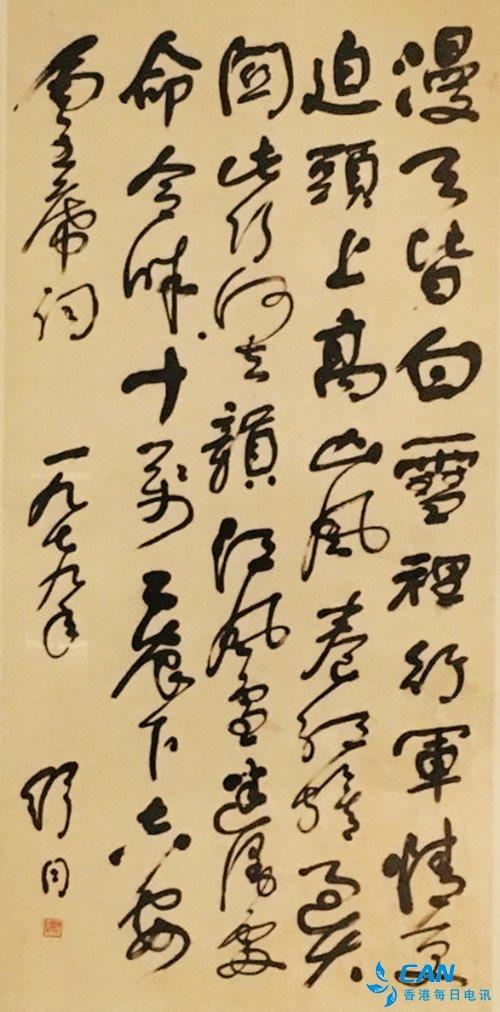 漫天皆白雪裡行軍情更
迫頭上高山風卷紅旗過大
関此行何去贛江風雪迷漫處
命令昨十萬工農下吉安
主席詞 一九七九年 舒同
CAN
香港每日电讯